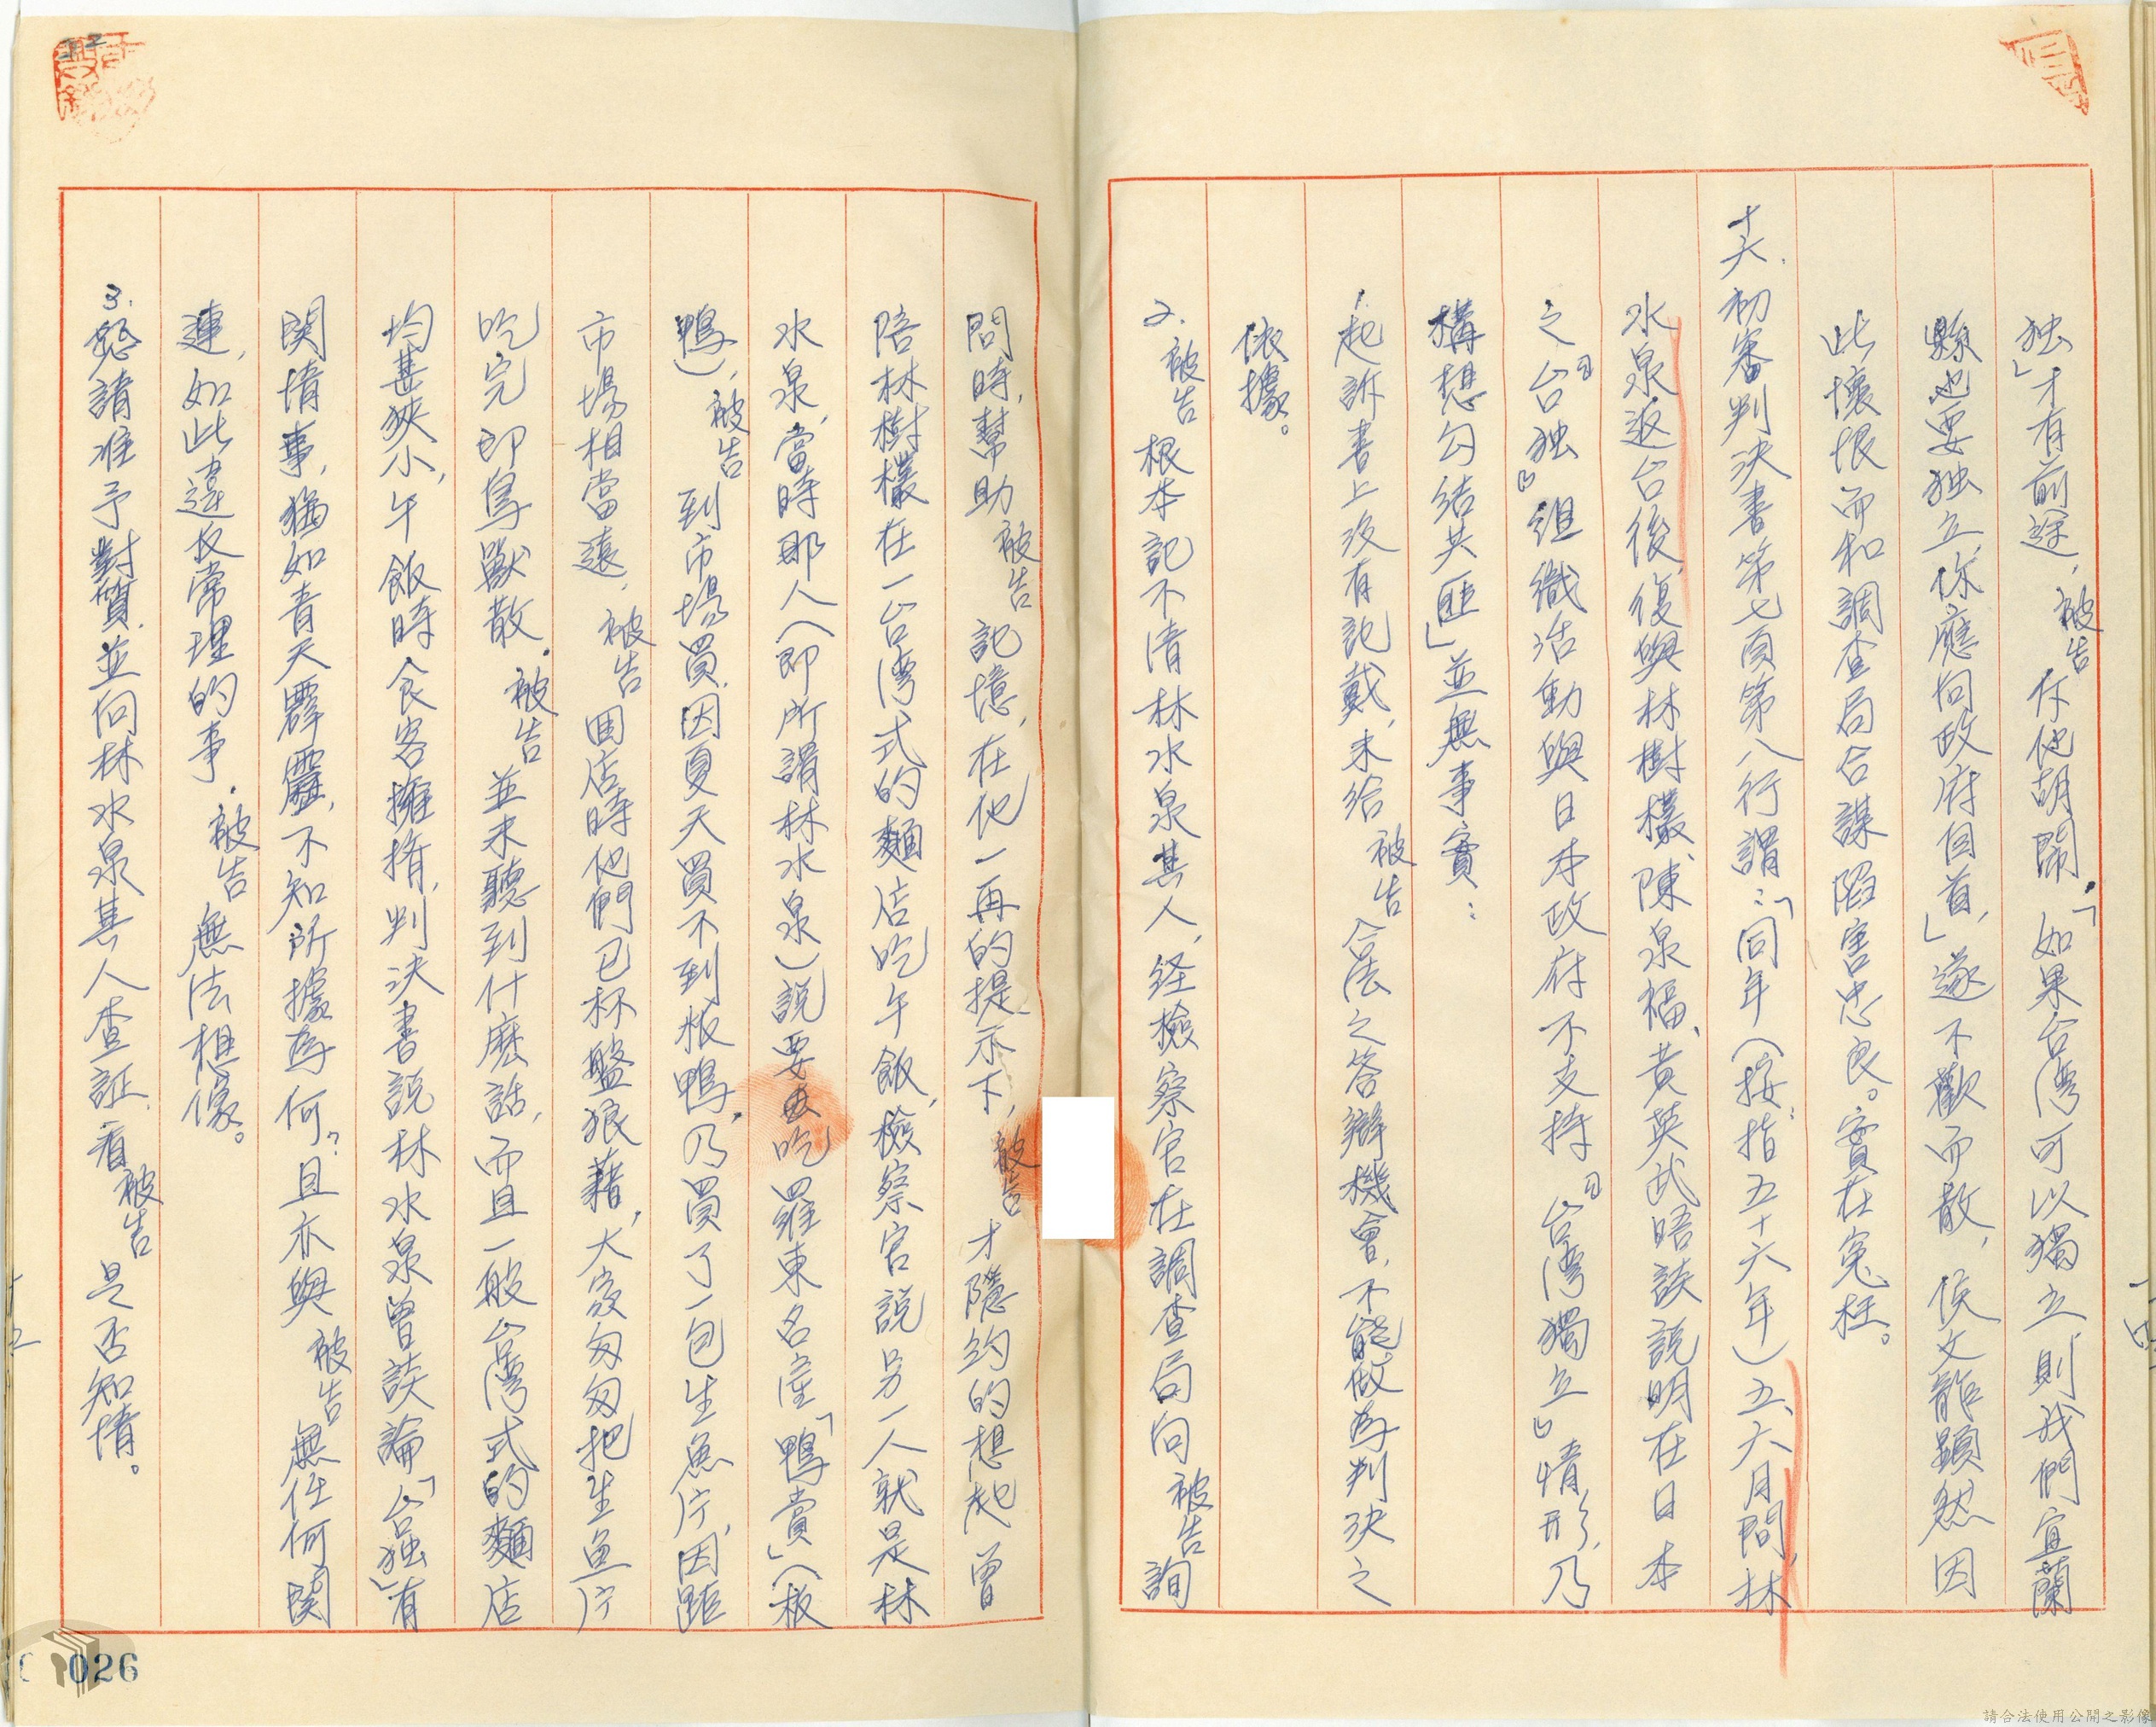 独」才有前途，被告斥他胡鬧。「如果台湾可以獨立，則我們宜蘭
縣也要独立，你應向政府自首，」遂不歡而散，侯文龍顯然因
此懷恨而和調查局合謀陷害忠良。實在冤枉。
十六、初審判決書第七頁第八行謂：「同年（按：指五十六年）五、六月間，林
水泉返台後，復與林樹欉、陳泉福、黄英武晤談說明在日本
之『台独』组織活動與日本政府不支持『台湾獨立』情形，乃
構想勾结共匪」並無事實：
1.起訴書上没有記戴，未给被告合法之答辯機會，不能做為判決之
依據。
2.被告根本記不清林水泉其人，经檢察官在調查局向被告詢
問時，幫助被告記憶，在他一再的提示下，被告才隱约的想起曾
陪林樹欉在一台湾式的麵店吃午飯，檢察官說另一人就是林
水泉，當時那人（即所謂林水泉）說要去吃羅東名產「鴨賞」（板
鴨），被告到市場買，因夏天買不到板鴨，乃買了一包生魚片，因距
市場相當遠，被告回店時他們已杯盤狼藉，大家匆匆把生魚片
吃完即鳥獸散，被告並未聽到什麽話，而且一般台湾式的麵店
均甚狹小，午飯時食客擁擠，判決書說林水泉曾談論「台独」有
関情事，猶如青天霹靂，不知所據為何？且亦與被告無任何関
連，如此違反常理的事，被告無法想像。
3.懇請准予對質，並向林水泉其人查証，看被告是否知情。
十四
十五
026
請合法使用公開之影像